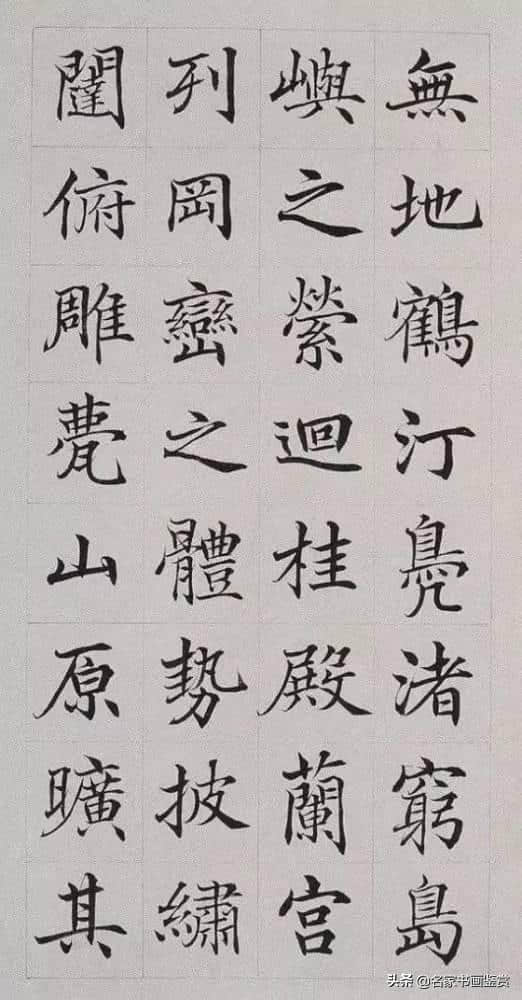 無地鶴汀鳧渚窮島
嶼之縈迴桂殿蘭宮
列岡巒之體勢披繡
闥俯雕甍山原曠其
头条 @名家书画鉴赏